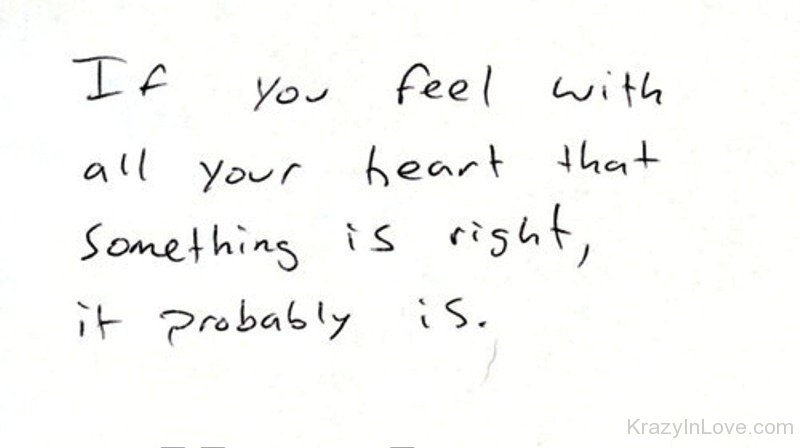 If you feel with
all your heart that
something is right,
it probably is.
KrazyInLove.com